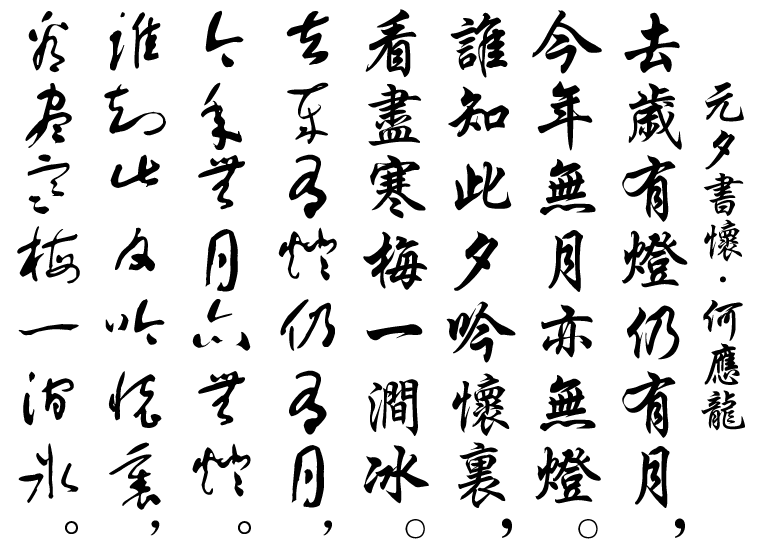 元夕書懷·何應龍
去歲有燈仍有月，
今年無月亦無燈。
誰知此夕吟懷裏，
看盡寒梅一澗冰。
去歲有燈仍有月，
今年無月亦無燈。
誰知此夕吟懷裏，
看盡寒梅一澗冰。